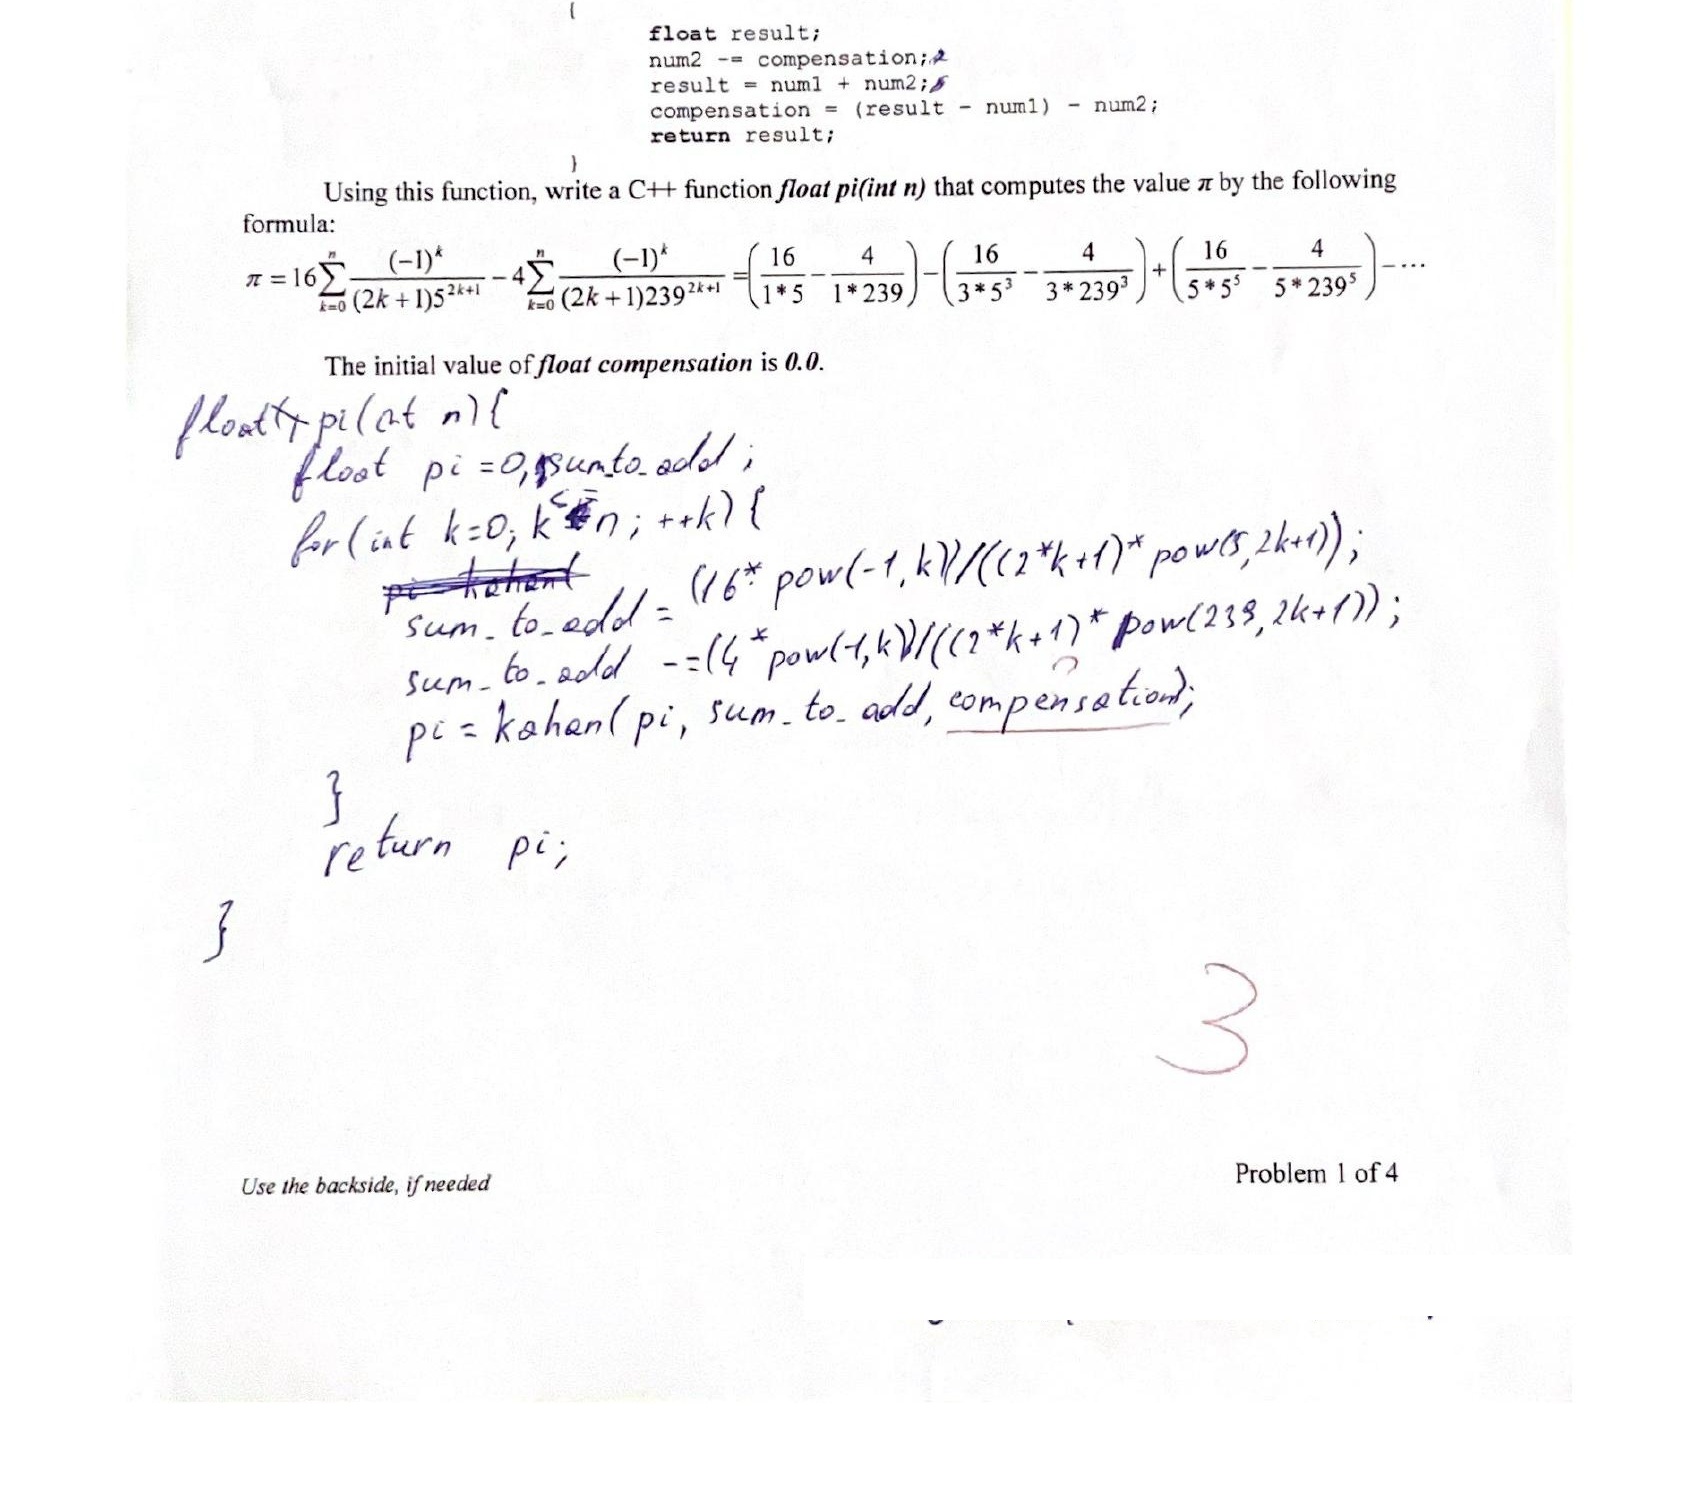 {
float result;
num2 -= compensation;
result = num1 + num2;
compensation = (result - num1) - num2;
return result;
}
Using this function, write a C++ function float pi(int n) that computes the value π by the following
formula:
π = 16 ∑_{k=0}^{n} (-1)^k / ((2k+1)5^{2k+1}) - 4 ∑_{k=0}^{n} (-1)^k / ((2k+1)239^{2k+1}) = (16/(1*5) - 4/(1*239)) - (16/(3*5^3) - 4/(3*239^3)) + (16/(5*5^5) - 4/(5*239^5)) - ...
The initial value of float compensation is 0.0.
float pi(int n){
float pi=0, sum_to_add;
for(int k=0; k<=n; ++k){
pi kahan(
sum_to_add = (16*pow(-1,k))/((2*k+1)*pow(5,2k+1));
sum_to_add -=(4*pow(-1,k))/((2*k+1)*pow(239,2k+1));
pi = kahan(pi, sum_to_add, compensation);
}
return pi;
}
3
Use the backside, if needed
Problem 1 of 4